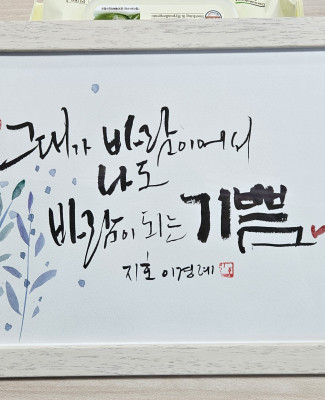 그대가 바람이어서
나도
바람이 되는 기쁨
지호 이경례